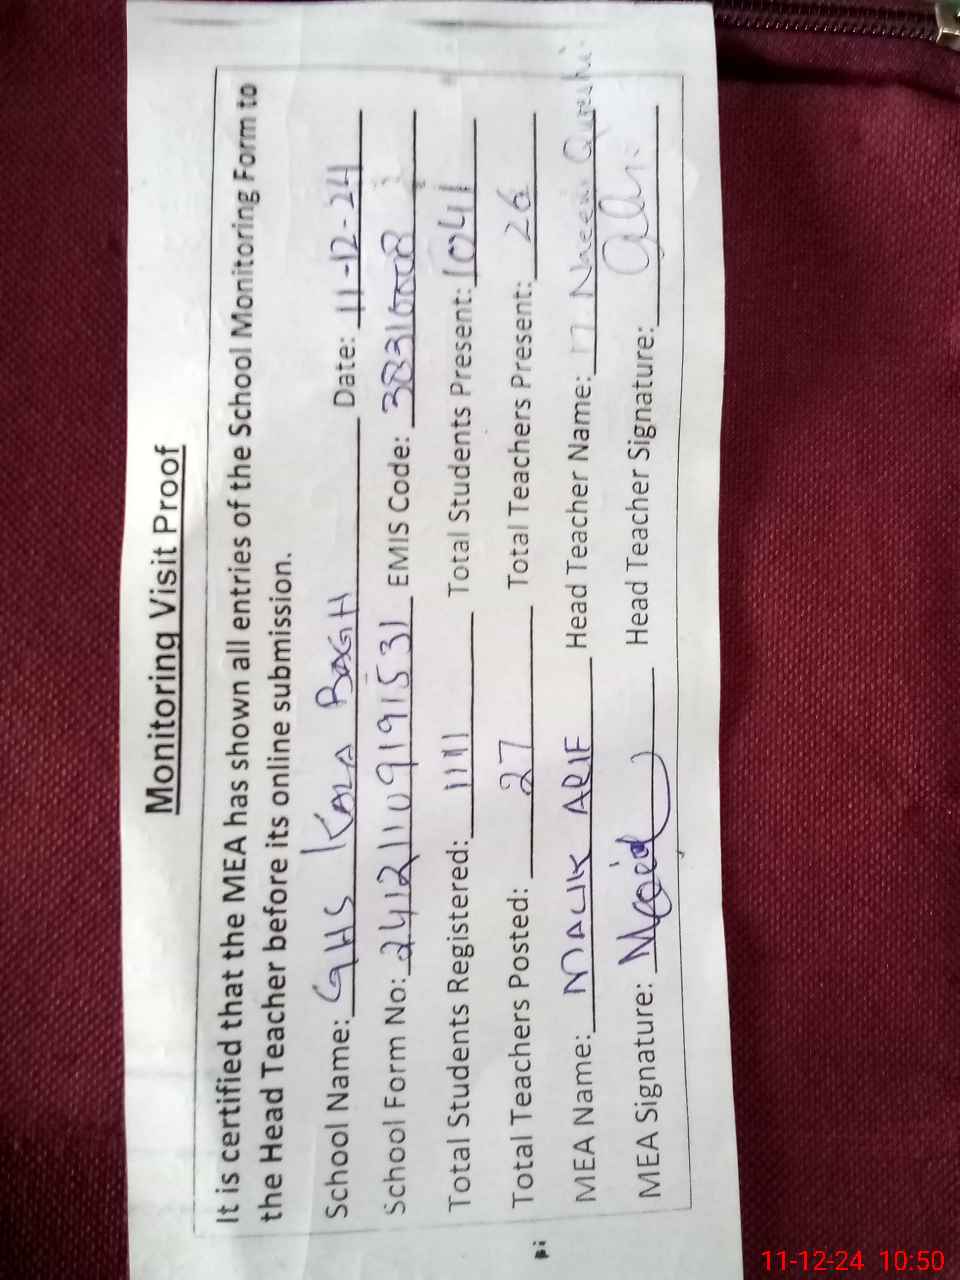 Monitoring Visit Proof
It is certified that the MEA has shown all entries of the School Monitoring Form to
the Head Teacher before its online submission.
School Name: GHS KALA BAGH Date: 11-12-24
School Form No: 24121109191531 EMIS Code: 38310008
Total Students Registered: 1111 Total Students Present: 1041
Total Teachers Posted: 27 Total Teachers Present: 26
MEA Name: MALIK ARIF Head Teacher Name: Naeem Qureshi
MEA Signature: Head Teacher Signature:
11-12-24 10:50